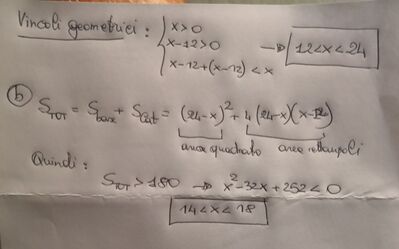 Vincoli geometrici : { x>0
x-12>0 → 12<x<24
x-12+(x-12)<x
(b) S_TOT = S_base + S_lat = (24-x)² + 4(24-x)(x-12)
area quadrato area rettangoli
Quindi :
S_TOT > 180 → x²-32x+252<0
14<x<18